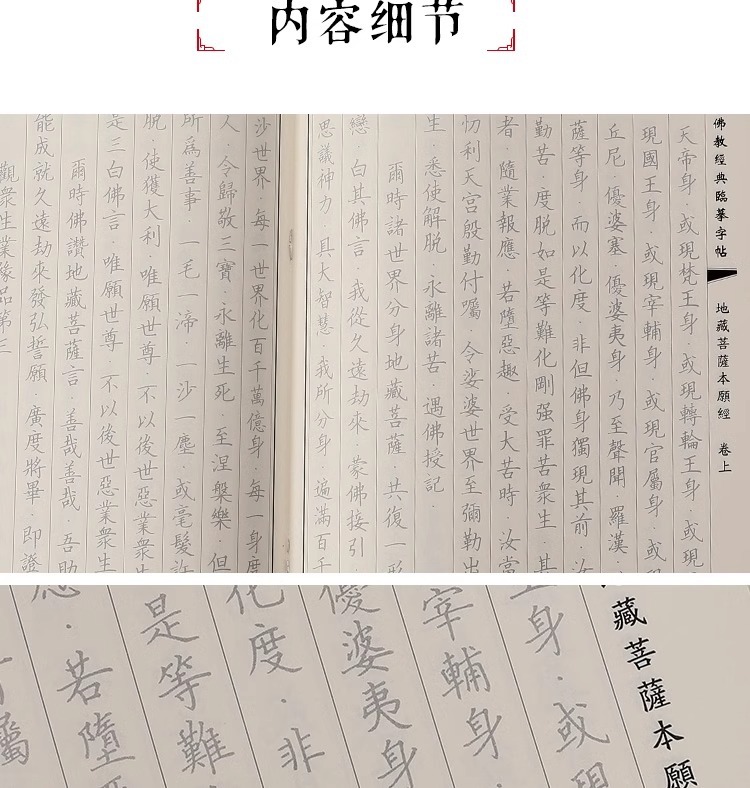 内容细节
佛教經典臨摹字帖
地藏菩薩本願經 卷上
天帝身·或現梵王身·或現轉輪王身·或現
現國王身·或現宰輔身·或現官屬身·或
丘尼·優婆塞·優婆夷身·乃至聲聞·羅漢·
薩等身·而以化度·非但佛身獨現其前·汝
勤苦·度脫如是等難化剛强罪苦衆生·其
者·隨業報應·若墮惡趣·受大苦時·汝當
忉利天宮殷勤付囑·令娑婆世界至彌勒出
生·悉使解脫·永離諸苦·遇佛授記·
爾時諸世界分身地藏菩薩·共復一形
戀·白其佛言·我從久遠劫來·蒙佛接引
思議神力·具大智慧·我所分身·遍滿百千
沙世界·每一世界化百千萬億身·每一身度
人·令歸敬三寶·永離生死·至涅槃樂·但
所爲善事·一毛一渧·一沙一塵·或毫髮許
脫·使獲大利·唯願世尊·不以後世惡業衆生
是三白佛言·唯願世尊·不以後世惡業衆生
爾時佛讚地藏菩薩言·善哉善哉·吾助
能成就久遠劫來發弘誓願·廣度將畢·即證
觀衆生業緣品第三
藏菩薩本願
身·或現
宰輔身
優婆夷身
化度·非
是等難
應·若墮
囑